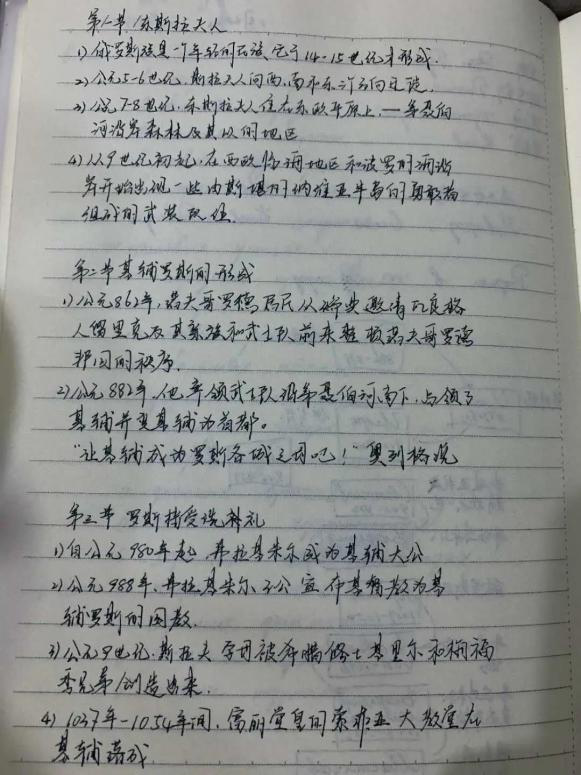 第一节 东斯拉夫人
1) 俄罗斯族是一个年轻的民族,它于14-15世纪才形成.
2) 公元5-6世纪,斯拉夫人向西,南和东许方向迁徙.
3) 公元7-8世纪,东斯拉夫人住在东欧平原上,一第聂伯
河沿岸森林及其以的地区
4) 从9世纪初起,在西欧临海地区和波罗的海沿
岸开始出现一些由斯堪的纳维亚半岛的勇敢者
组成的武装队伍.
第二节 基辅罗斯的形成
1) 公元862年,诺夫哥罗德居民从瑞典邀请瓦良格
人留里克及其亲族和武士队前来整顿诺夫哥罗德
邦国的秩序.
2) 公元882年,他率领武士队沿第聂伯河南下,占领了
基辅并变基辅为首都。
“让基辅成为罗斯各城之母吧!”奥列格说
第三节 罗斯接受洗礼
1) 自公元980年起,弗拉基米尔成为基辅大公
2) 公元988年,弗拉基米尔 公宣布基督教为基
辅罗斯的国教.
3) 公元9世纪,斯拉夫字母被希腊修士基里尔和梅福
季兄弟创造出来.
4) 1037年-1054年间,富丽堂皇的索菲亚大教堂在
基辅落成